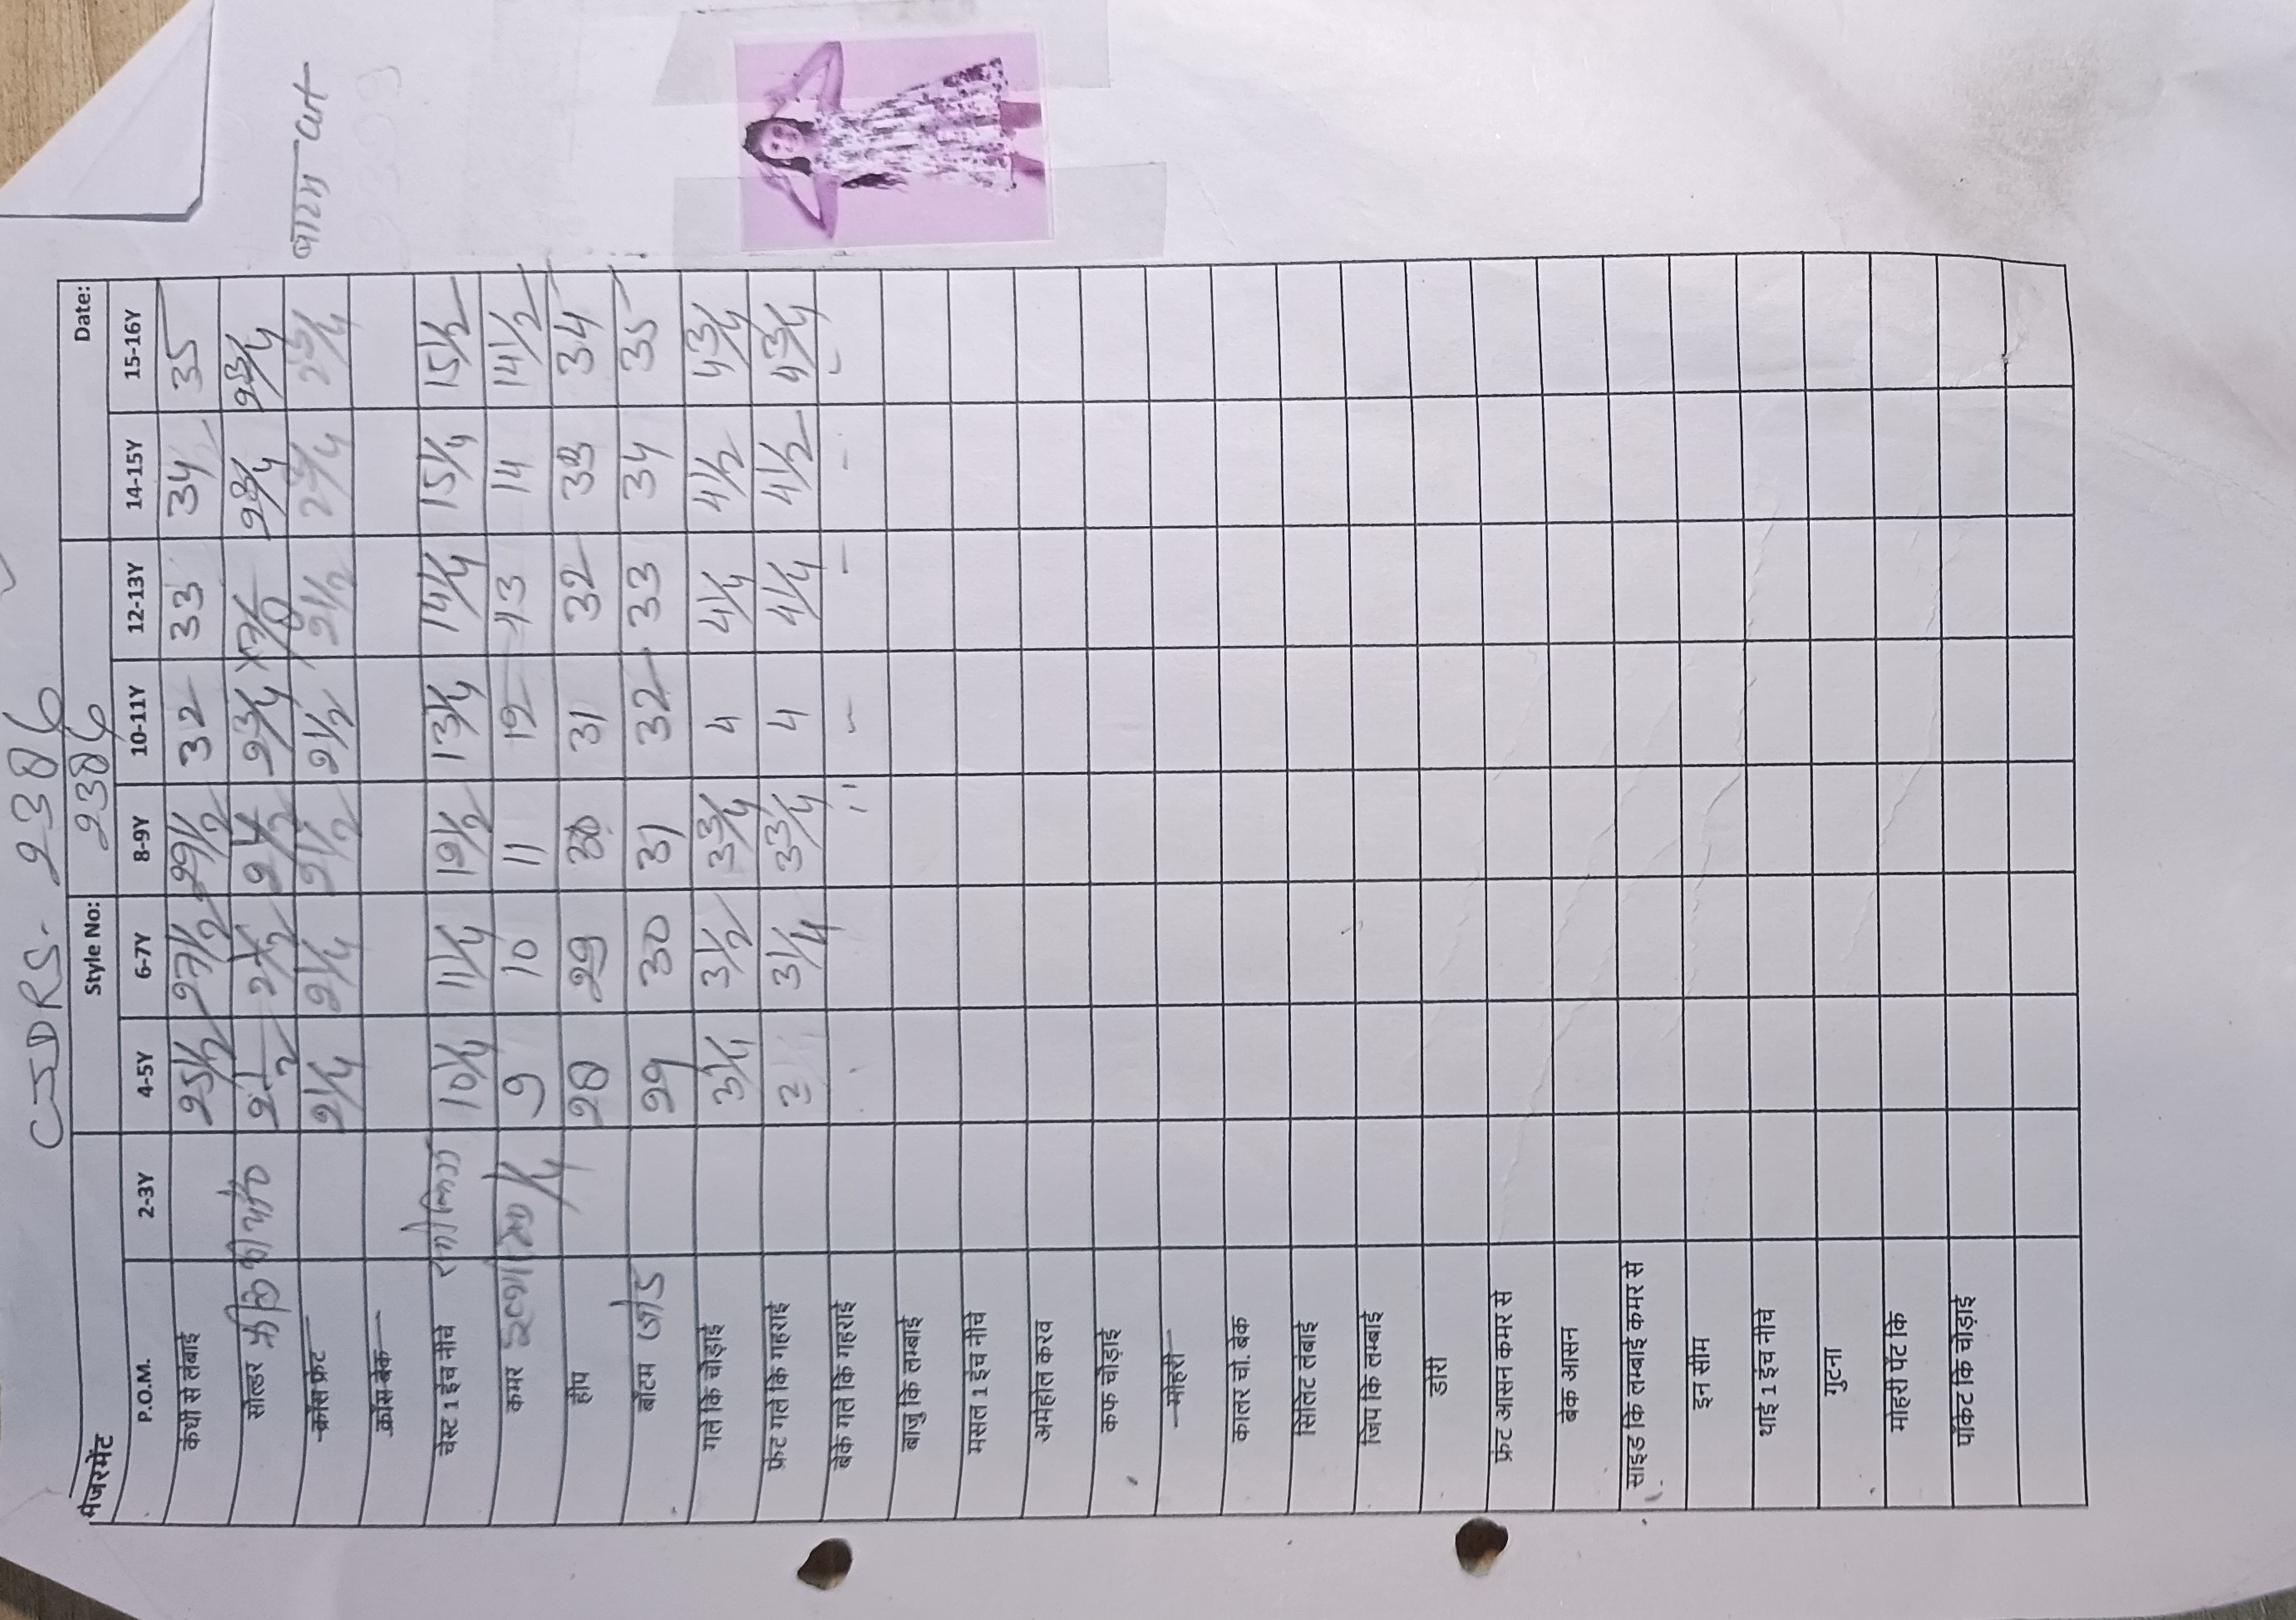 CJDRS- 2386
मेजरमेंट Style No: 2386 Date:
P.O.M. 2-3Y 4-5Y 6-7Y 8-9Y 10-11Y 12-13Y 14-15Y 15-16Y
कंधी से लंबाई 25 1/2 27 1/2 29 1/2 32 33 34 35
सोल्डर 2 1/2 2 1/2 2 1/2 2 3/4 2 3/4 2 3/4
क्रॉस फ्रंट 2 1/4 2 1/4 2 1/2 2 1/2 2 1/2 2 3/4 2 3/4
क्रॉस बेक
चेस्ट 1 इंच नीचे 10 1/4 11 1/4 12 1/2 13 1/4 14 1/4 15 1/4 15 1/2
कमर 9 10 11 12 13 14 14 1/2
हीप 28 29 30 31 32 33 34
बॉटम जोड 29 30 31 32 33 34 35
गले कि चौड़ाई 3 1/4 3 1/2 3 3/4 4 4 1/4 4 1/2 4 3/4
फ्रंट गले कि गहराई 3 1/4 3 3/4 4 4 1/4 4 1/2 4 3/4
बेक गले कि गहराई
बाजु कि लम्बाई
मसल 1 इंच नीचे
अमेहोल करव
कफ चौड़ाई
मोहरी
कालर चो. बेक
सिलिट लंबाई
जिप कि लम्बाई
डोरी
फ्रंट आसन कमर से
बेक आसन
साइड कि लम्बाई कमर से
इन सीम
थाई 1 इंच नीचे
गुटना
मोहरी पेंट कि
पॉकेट कि चौड़ाई
cut